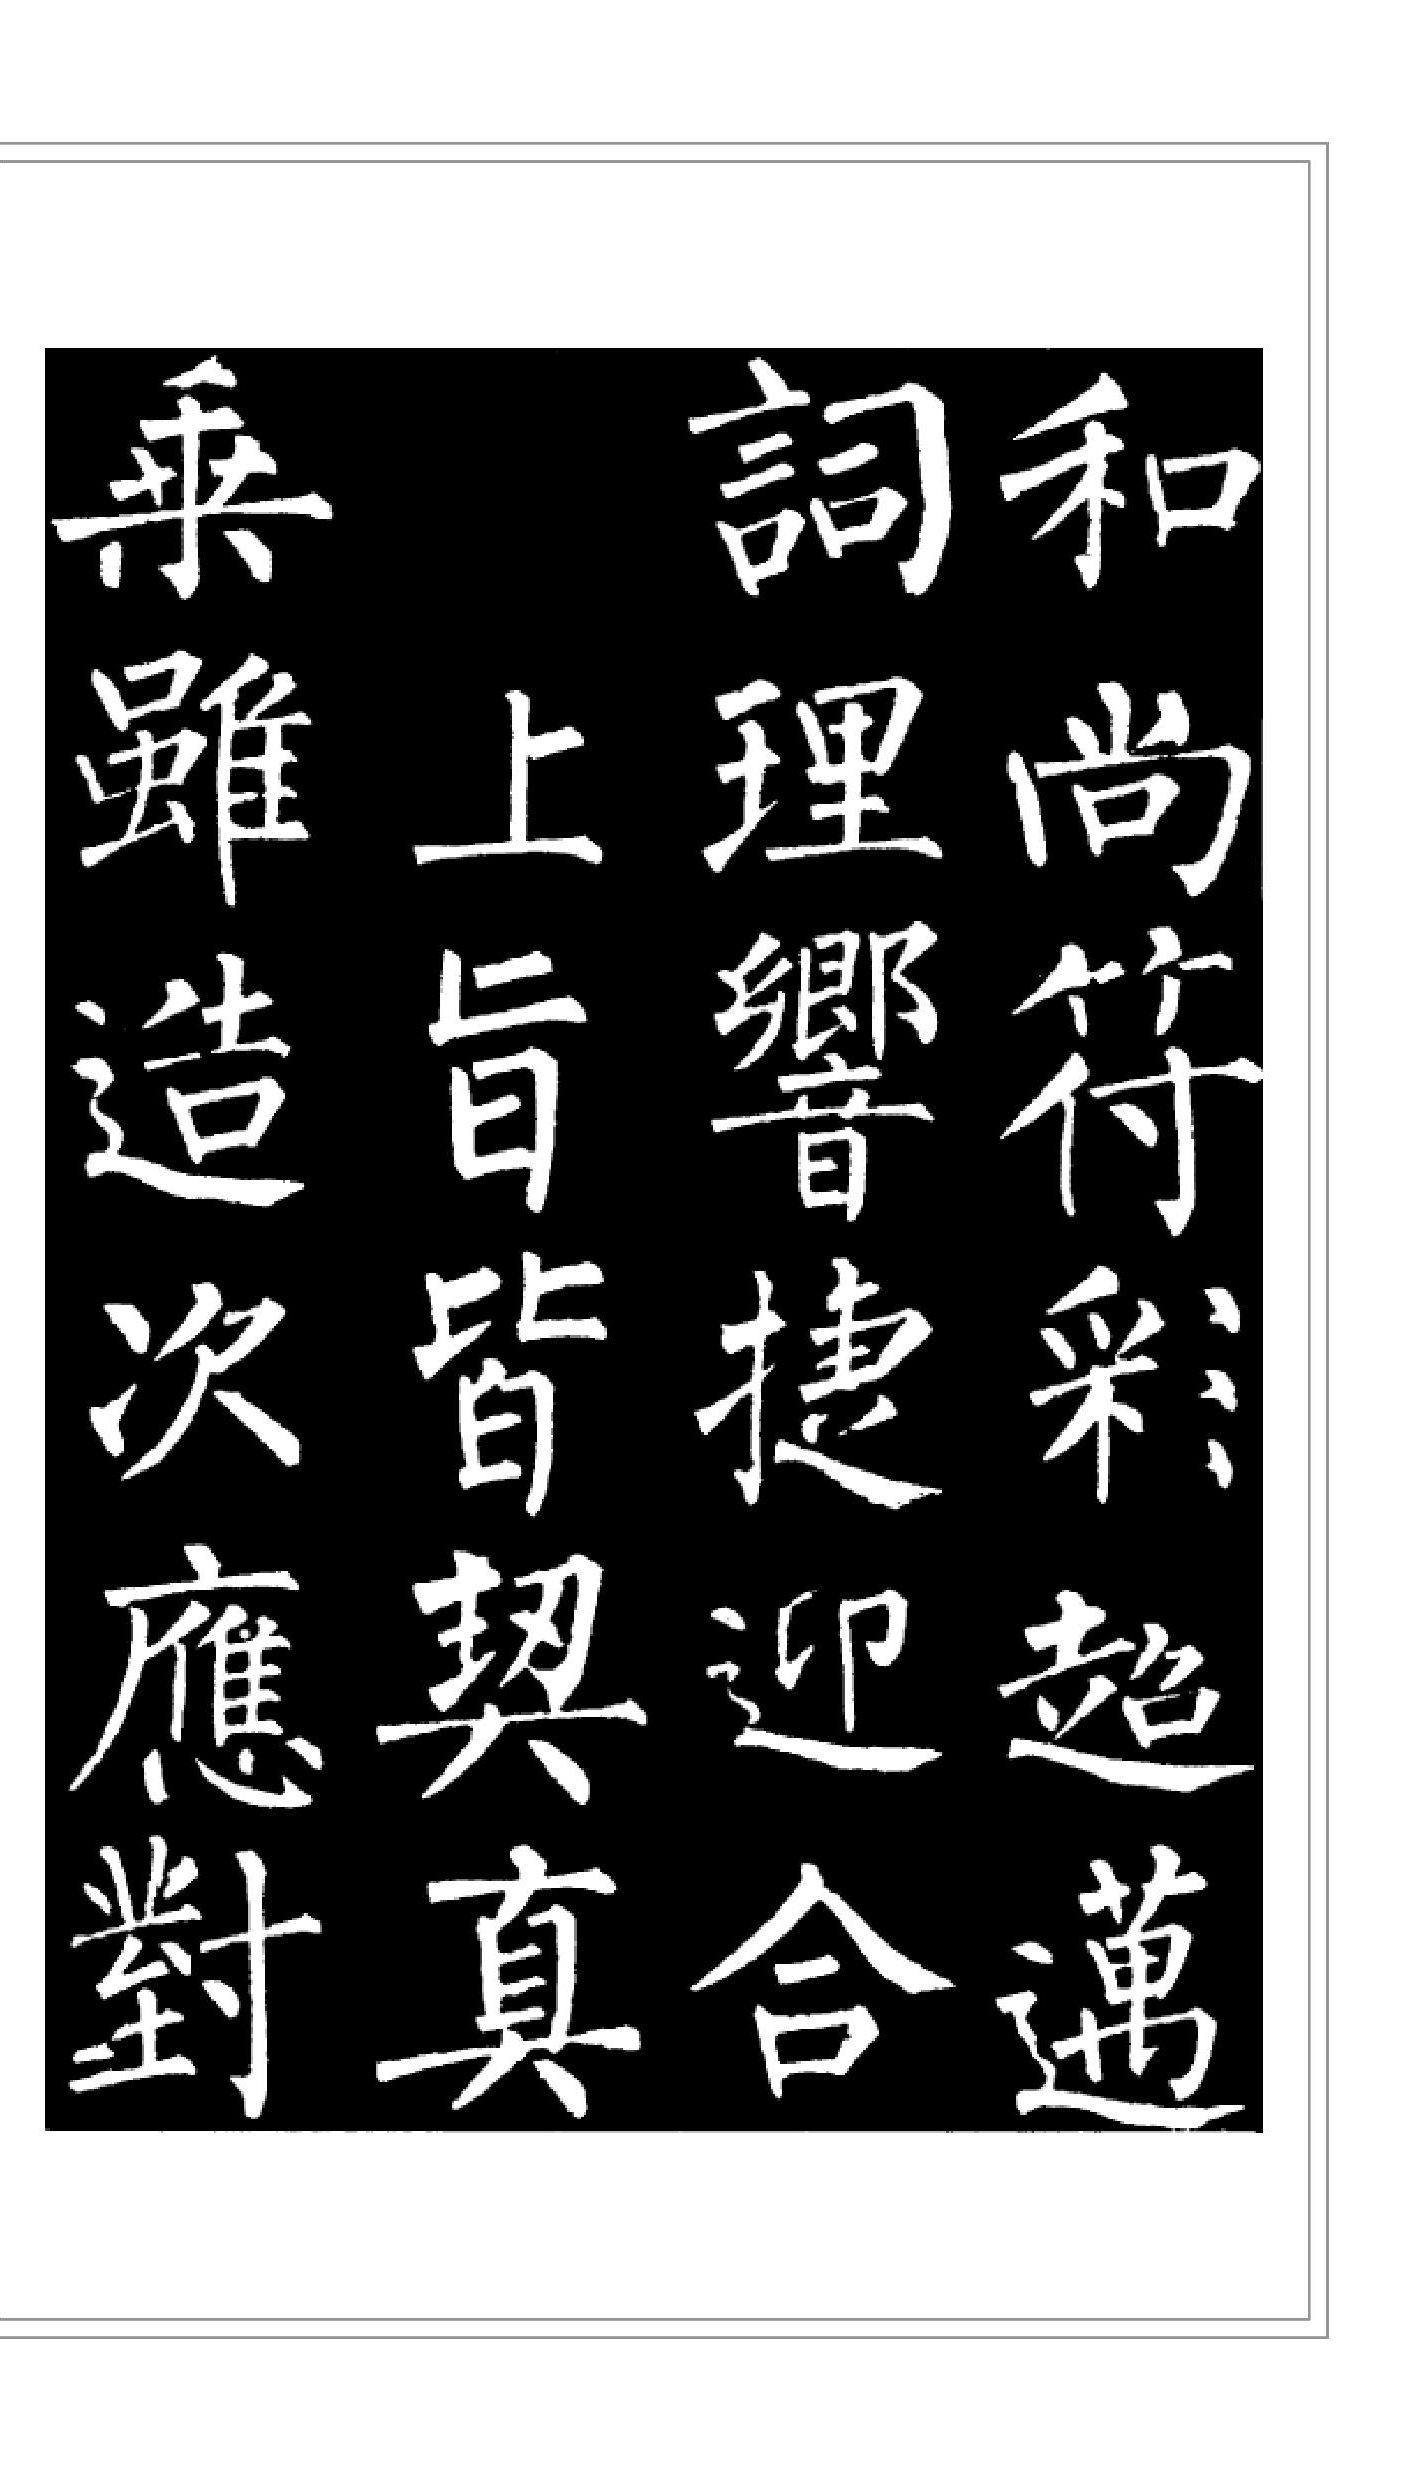 和尚符彩超邁
詞理響捷迎合
上旨皆契真
乗雖造次應對